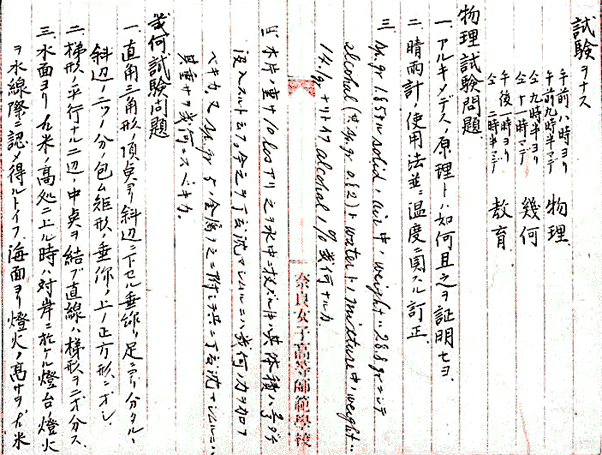 試験ヲナス
午前八時ヨリ
午前九時半マデ 物理
仝九時半ヨリ
仝十一時マデ 幾何
午後一時ヨリ
仝二時半マデ 教育
物理試験問題
一、アルキメデスノ原理トハ如何且之ヲ証明セヨ
二、晴雨計ノ使用法並ニ温度ニ関スル訂正
三、sp.gr 1.85ナル solid ノ air 中ノ weight ハ 28.8 gr ニシテ
alcohol (ソノ sp.gr 0.82) ト water トノ mixture 中ノ weight ハ
14.1g ナリトイフ alcohol ノ % 幾何ナルカ
四、木片ノ重サ 10 ナリ 之ヲ水中ニ放テバ其体積ハ
没入スルト云フ 今之ヲ丁度沈マシムルニハ幾何ノ力ヲ加フ
ベキカ 又 sp.gr 5 ノ金属ヲ之ニ附シテ共ニ丁度沈マシムルニハ
其重サヲ幾何ニスベキカ
奈良女子高等師範學校
幾何試験問題
一、直角三角形ノ頂点ヨリ斜辺ニ下セル垂線ノ足ニヨリ分タルヽ
斜辺ノ二ツノ分ノ包ム矩形ハ垂線ノ上ノ正方形ニ等シ
二、梯形ノ平行ナル二辺ノ中点ヲ結ブ直線ハ梯形ヲ二等分ス
三、水面ヨリ九米ノ高処ニ上ル時ハ対岸ニ於ケル燈台ノ燈火
ヲ水線際ニ認メ得ルトイフ 海面ヨリ燈火ノ高サヲ 米